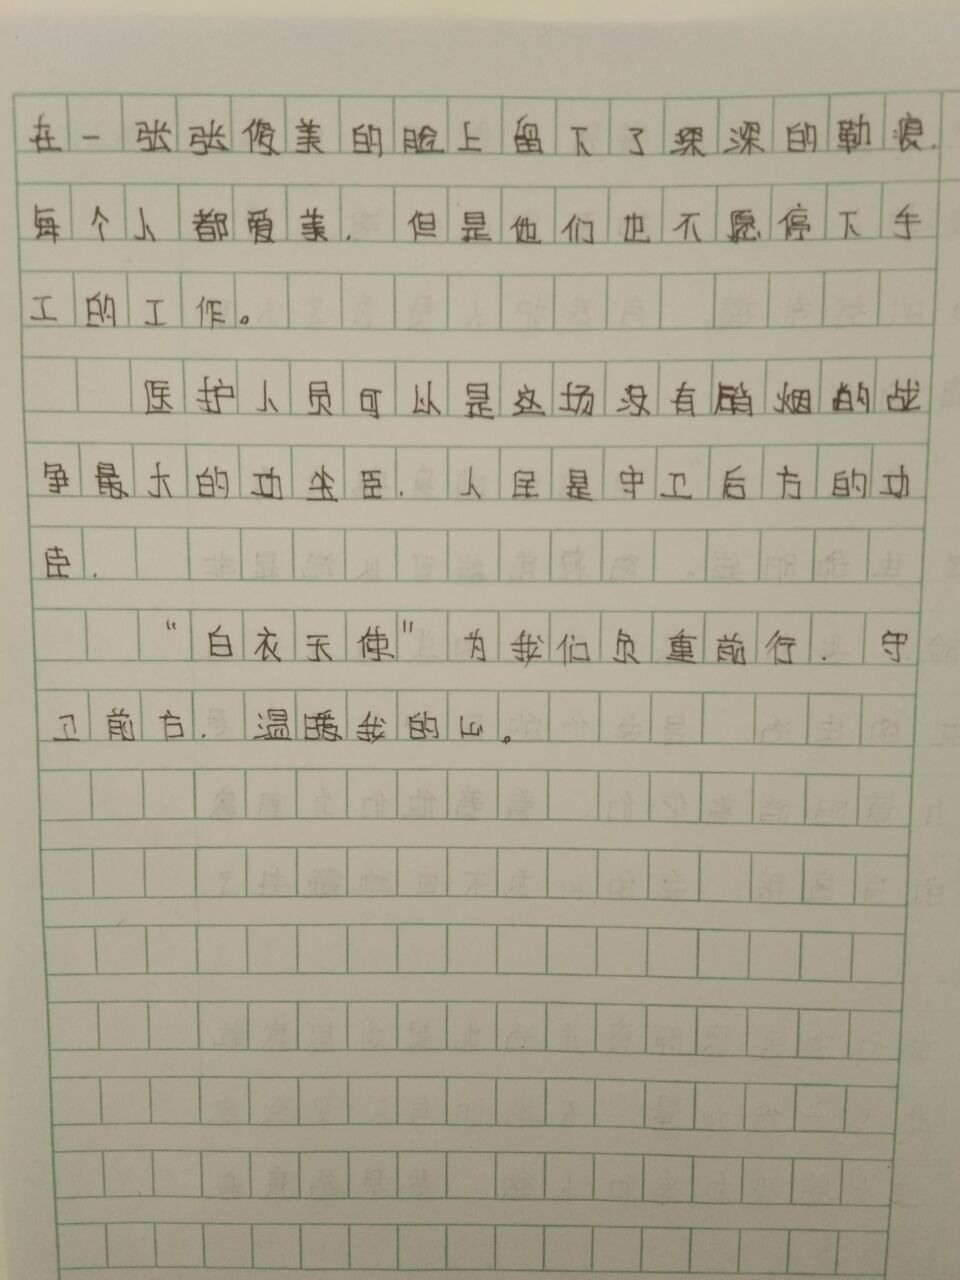 在一张张俊美的脸上留下了深深的勒浪.
每个人都爱美.但是他们也不愿停下手
工的工作。
医护人员可以是这场没有硝烟的战
争最大的功坐臣.人民是守卫后方的功
臣.
“白衣天使”为我们负重前行.守
卫前方.温暖我的心。